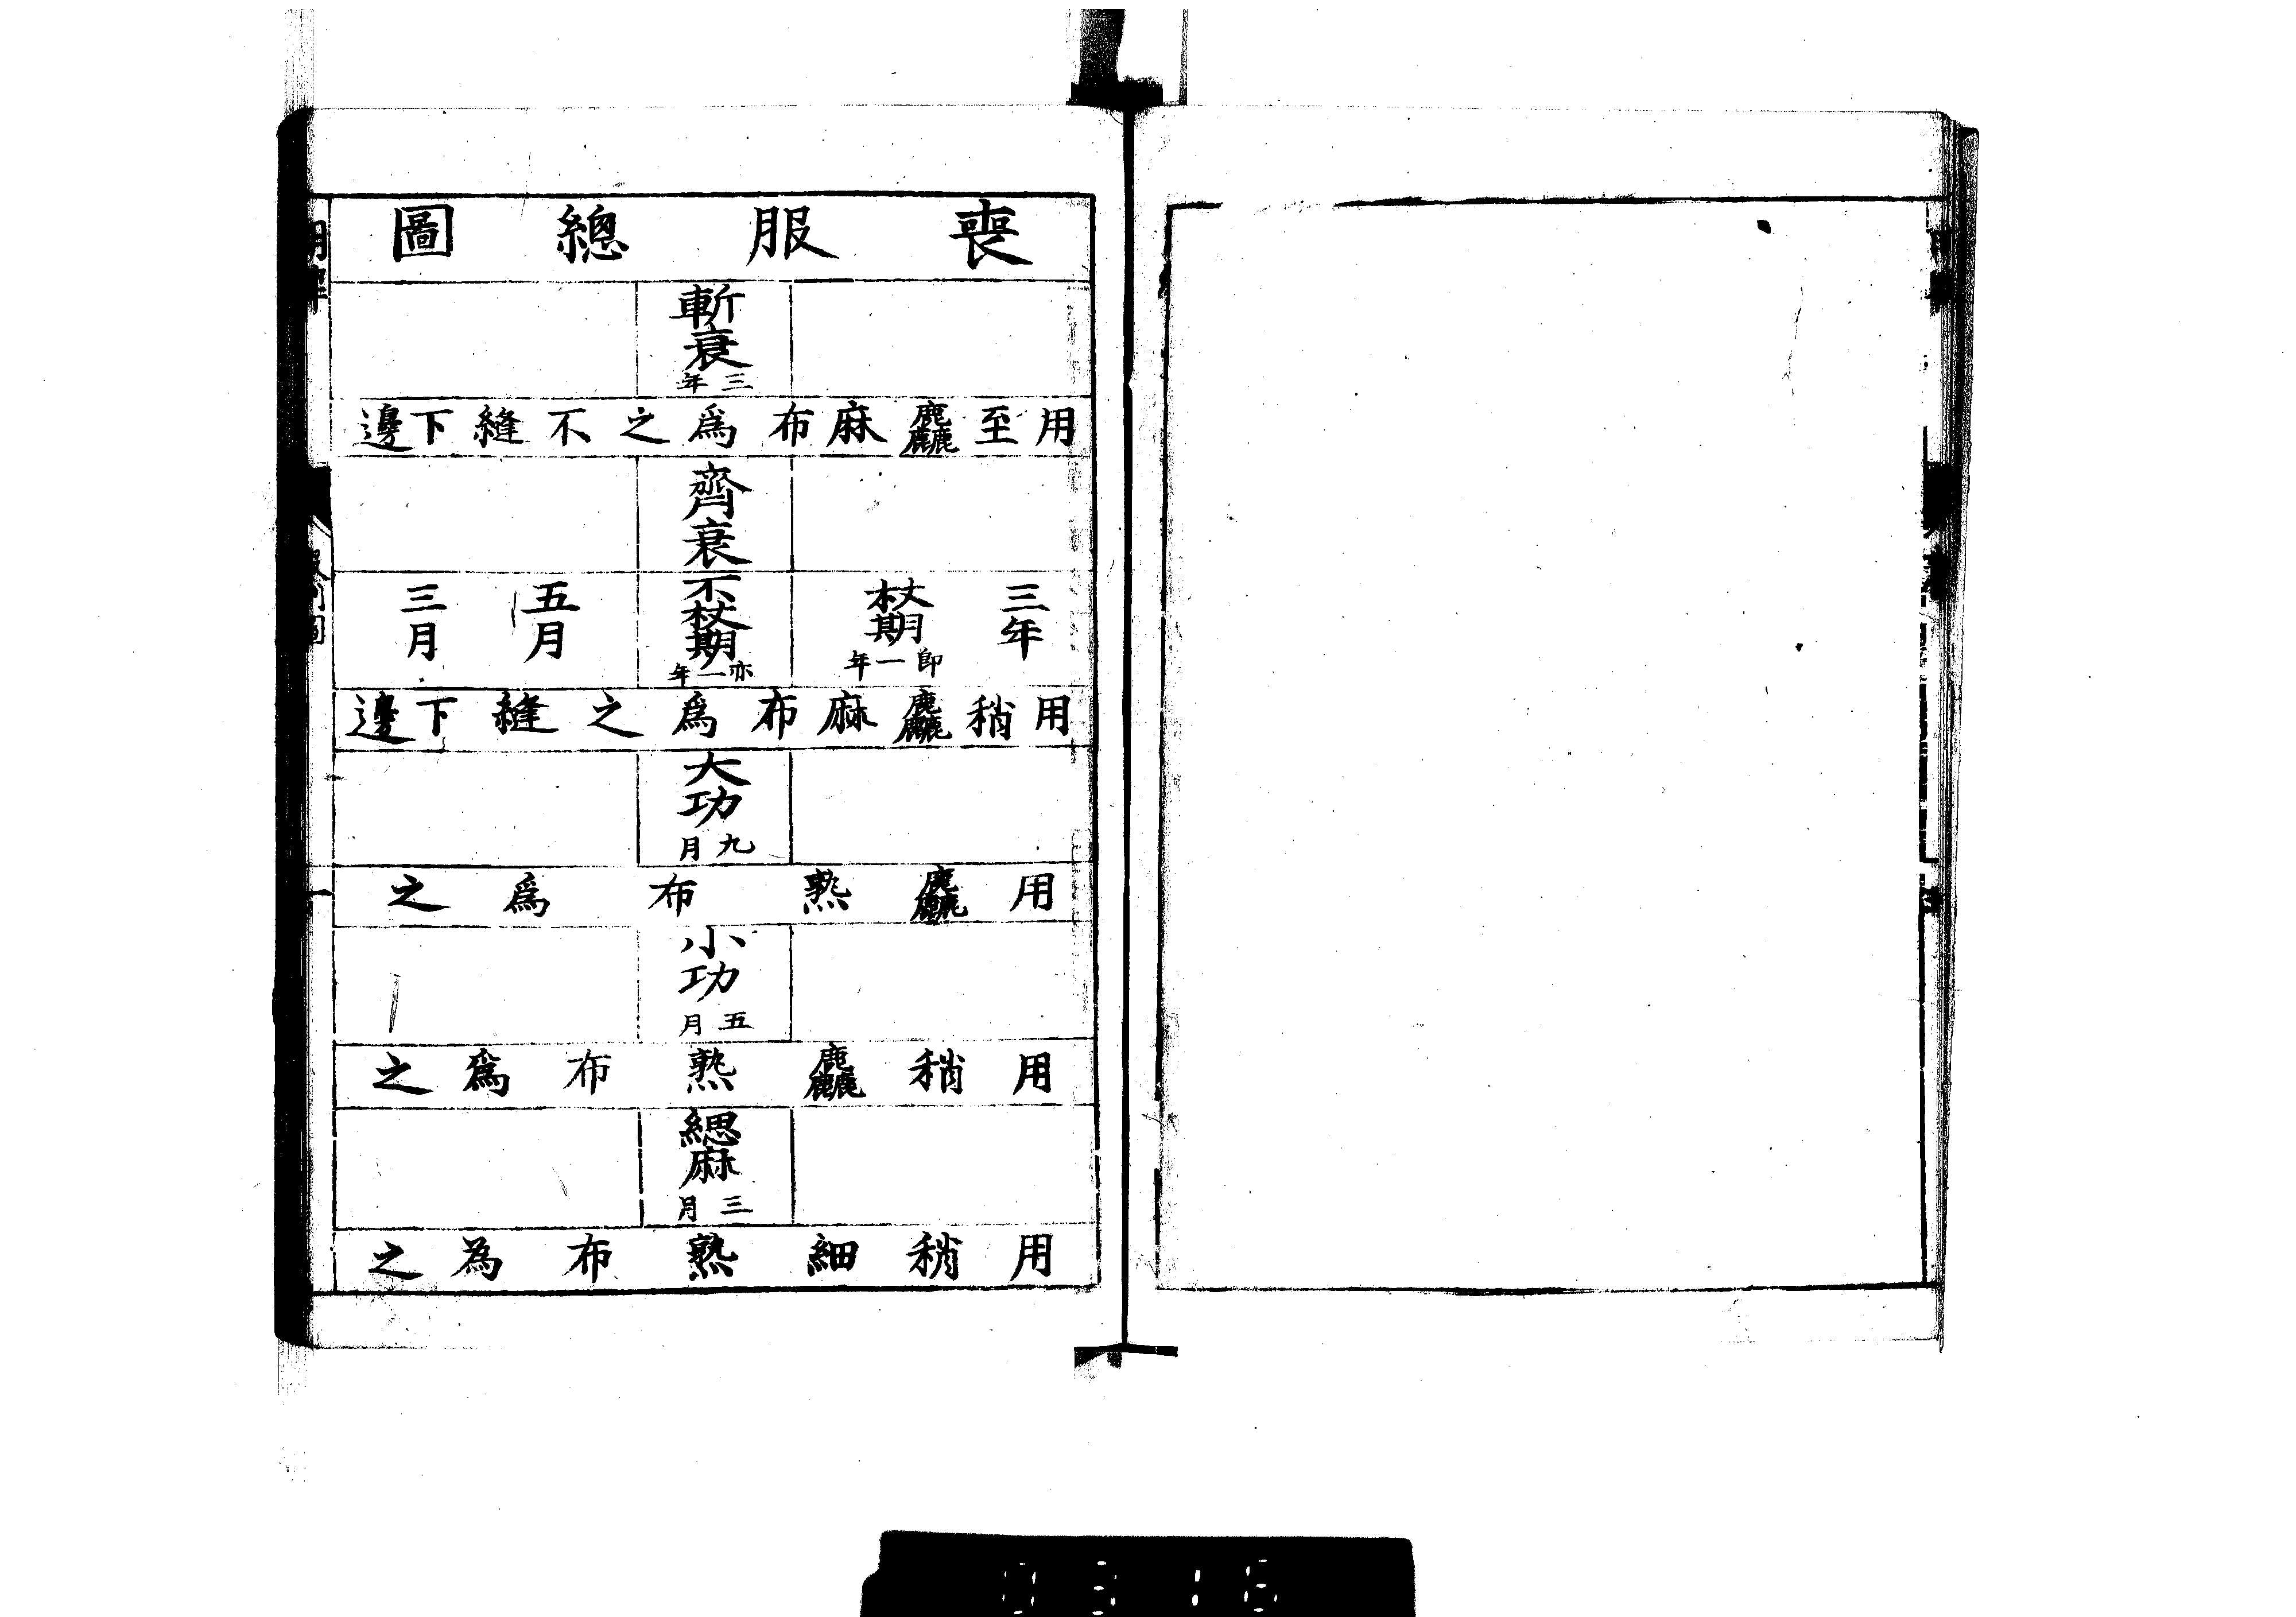 喪服總圖
斬衰
三年
用至麤麻布爲之不縫下邊
齊衰
三年
杖期
即一年
不杖期
亦一年
五月
三月
用稍麤麻布爲之縫下邊
大功
九月
用麤熟布爲之
小功
五月
用稍麤熟布爲之
緦麻
三月
用稍細熟布為之
0316